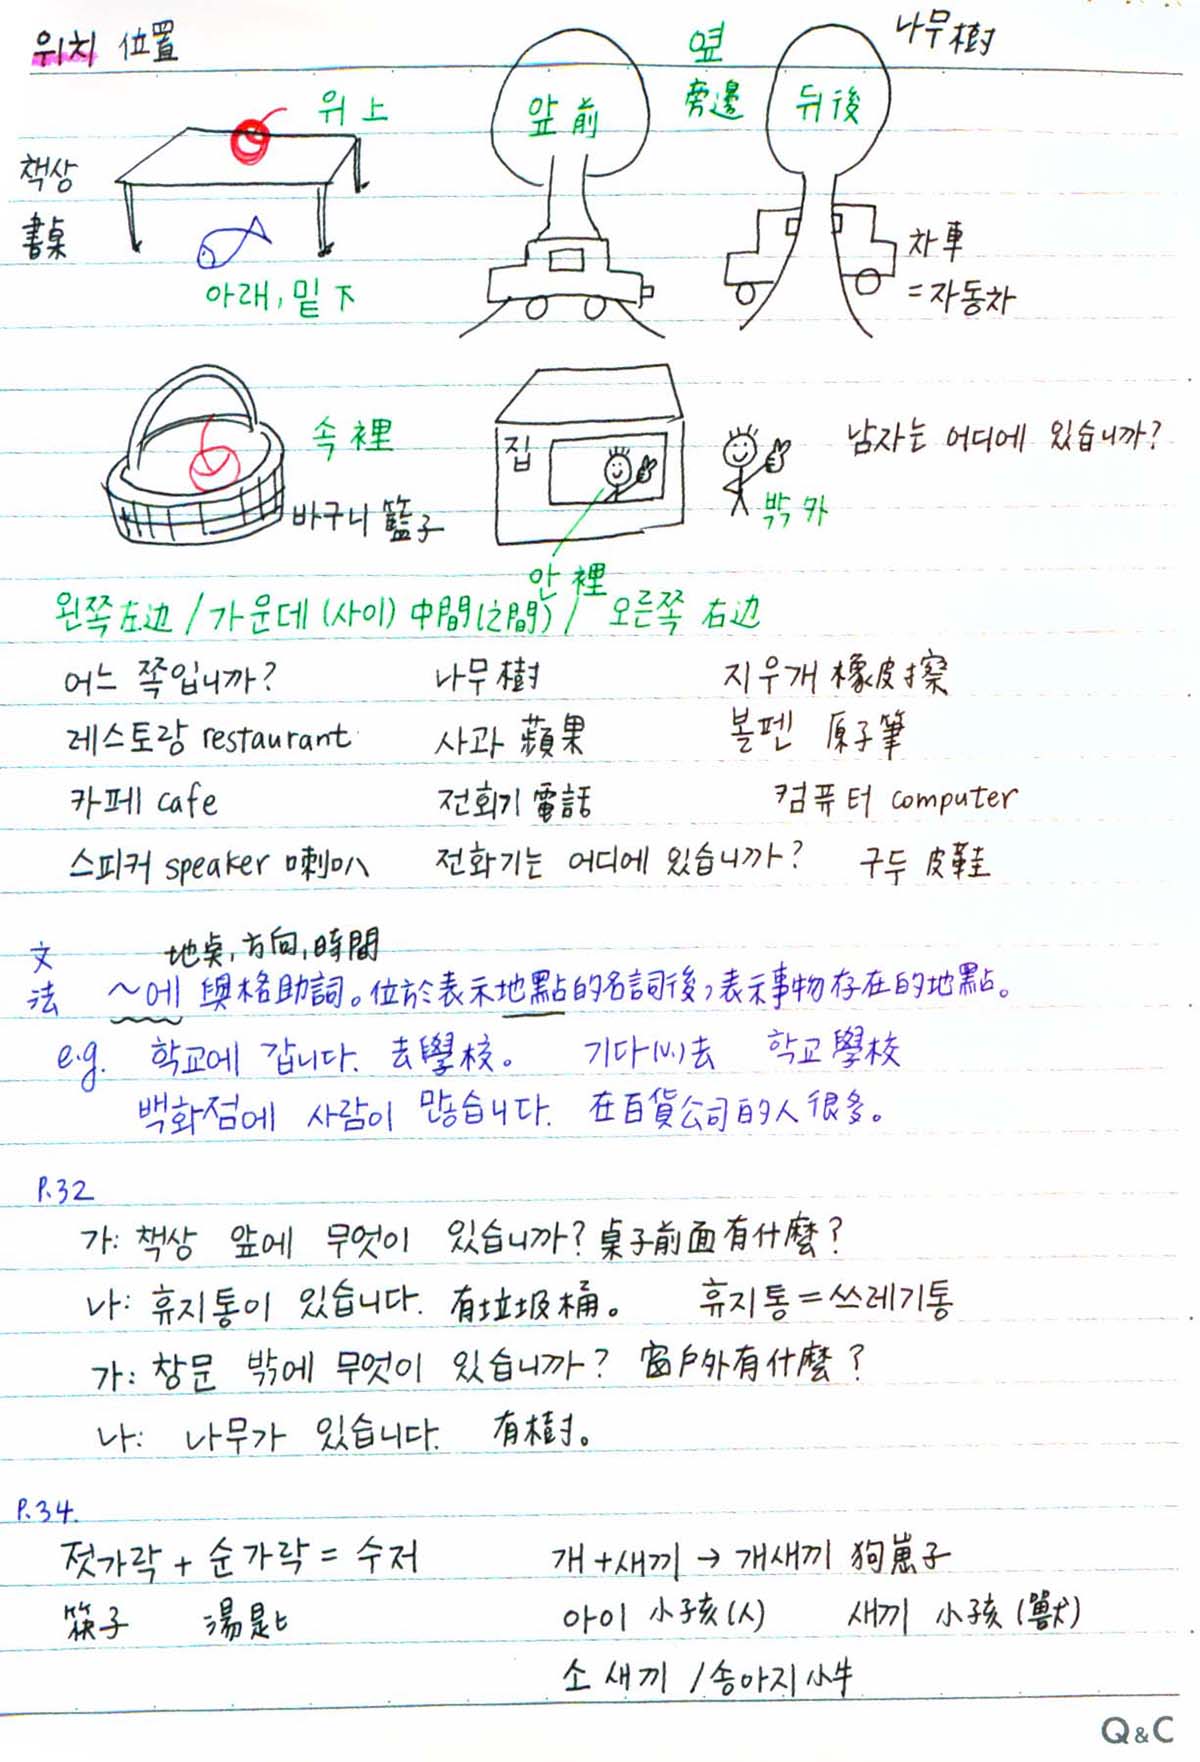 위치 位置
나무 樹
옆
旁邊
위 上
앞 前
뒤 後
책상
書桌
아래, 밑 下
차 車
=자동차
속 裡
바구니 籃子
집
남자는 어디에 있습니까?
밖 外
안 裡
왼쪽 左边 / 가운데 (사이) 中間(之間) / 오른쪽 右边
어느 쪽입니까? 나무 樹 지우개 橡皮擦
레스토랑 restaurant 사과 蘋果 볼펜 原子筆
카페 cafe 전화기 電話 컴퓨터 computer
스피커 speaker 喇叭 전화기는 어디에 있습니까? 구두 皮鞋
地点, 方向, 時間
文法 ~에 與格助詞。位於表示地點的名詞後,表示事物存在的地點。
e.g. 학교에 갑니다. 去學校。 기다(v.)去 학교 學校
백화점에 사람이 많습니다. 在百貨公司的人很多。
P.32
가: 책상 앞에 무엇이 있습니까? 桌子前面有什麼?
나: 휴지통이 있습니다. 有垃圾桶。 휴지통=쓰레기통
가: 창문 밖에 무엇이 있습니까? 窗戶外有什麼?
나: 나무가 있습니다. 有樹。
P.34.
젓가락 + 순가락 = 수저 개+새끼 → 개새끼 狗崽子
筷子 湯匙 아이 小子孩(人) 새끼 小子孩(獸)
소 새끼 / 송아지 小牛
Q&C